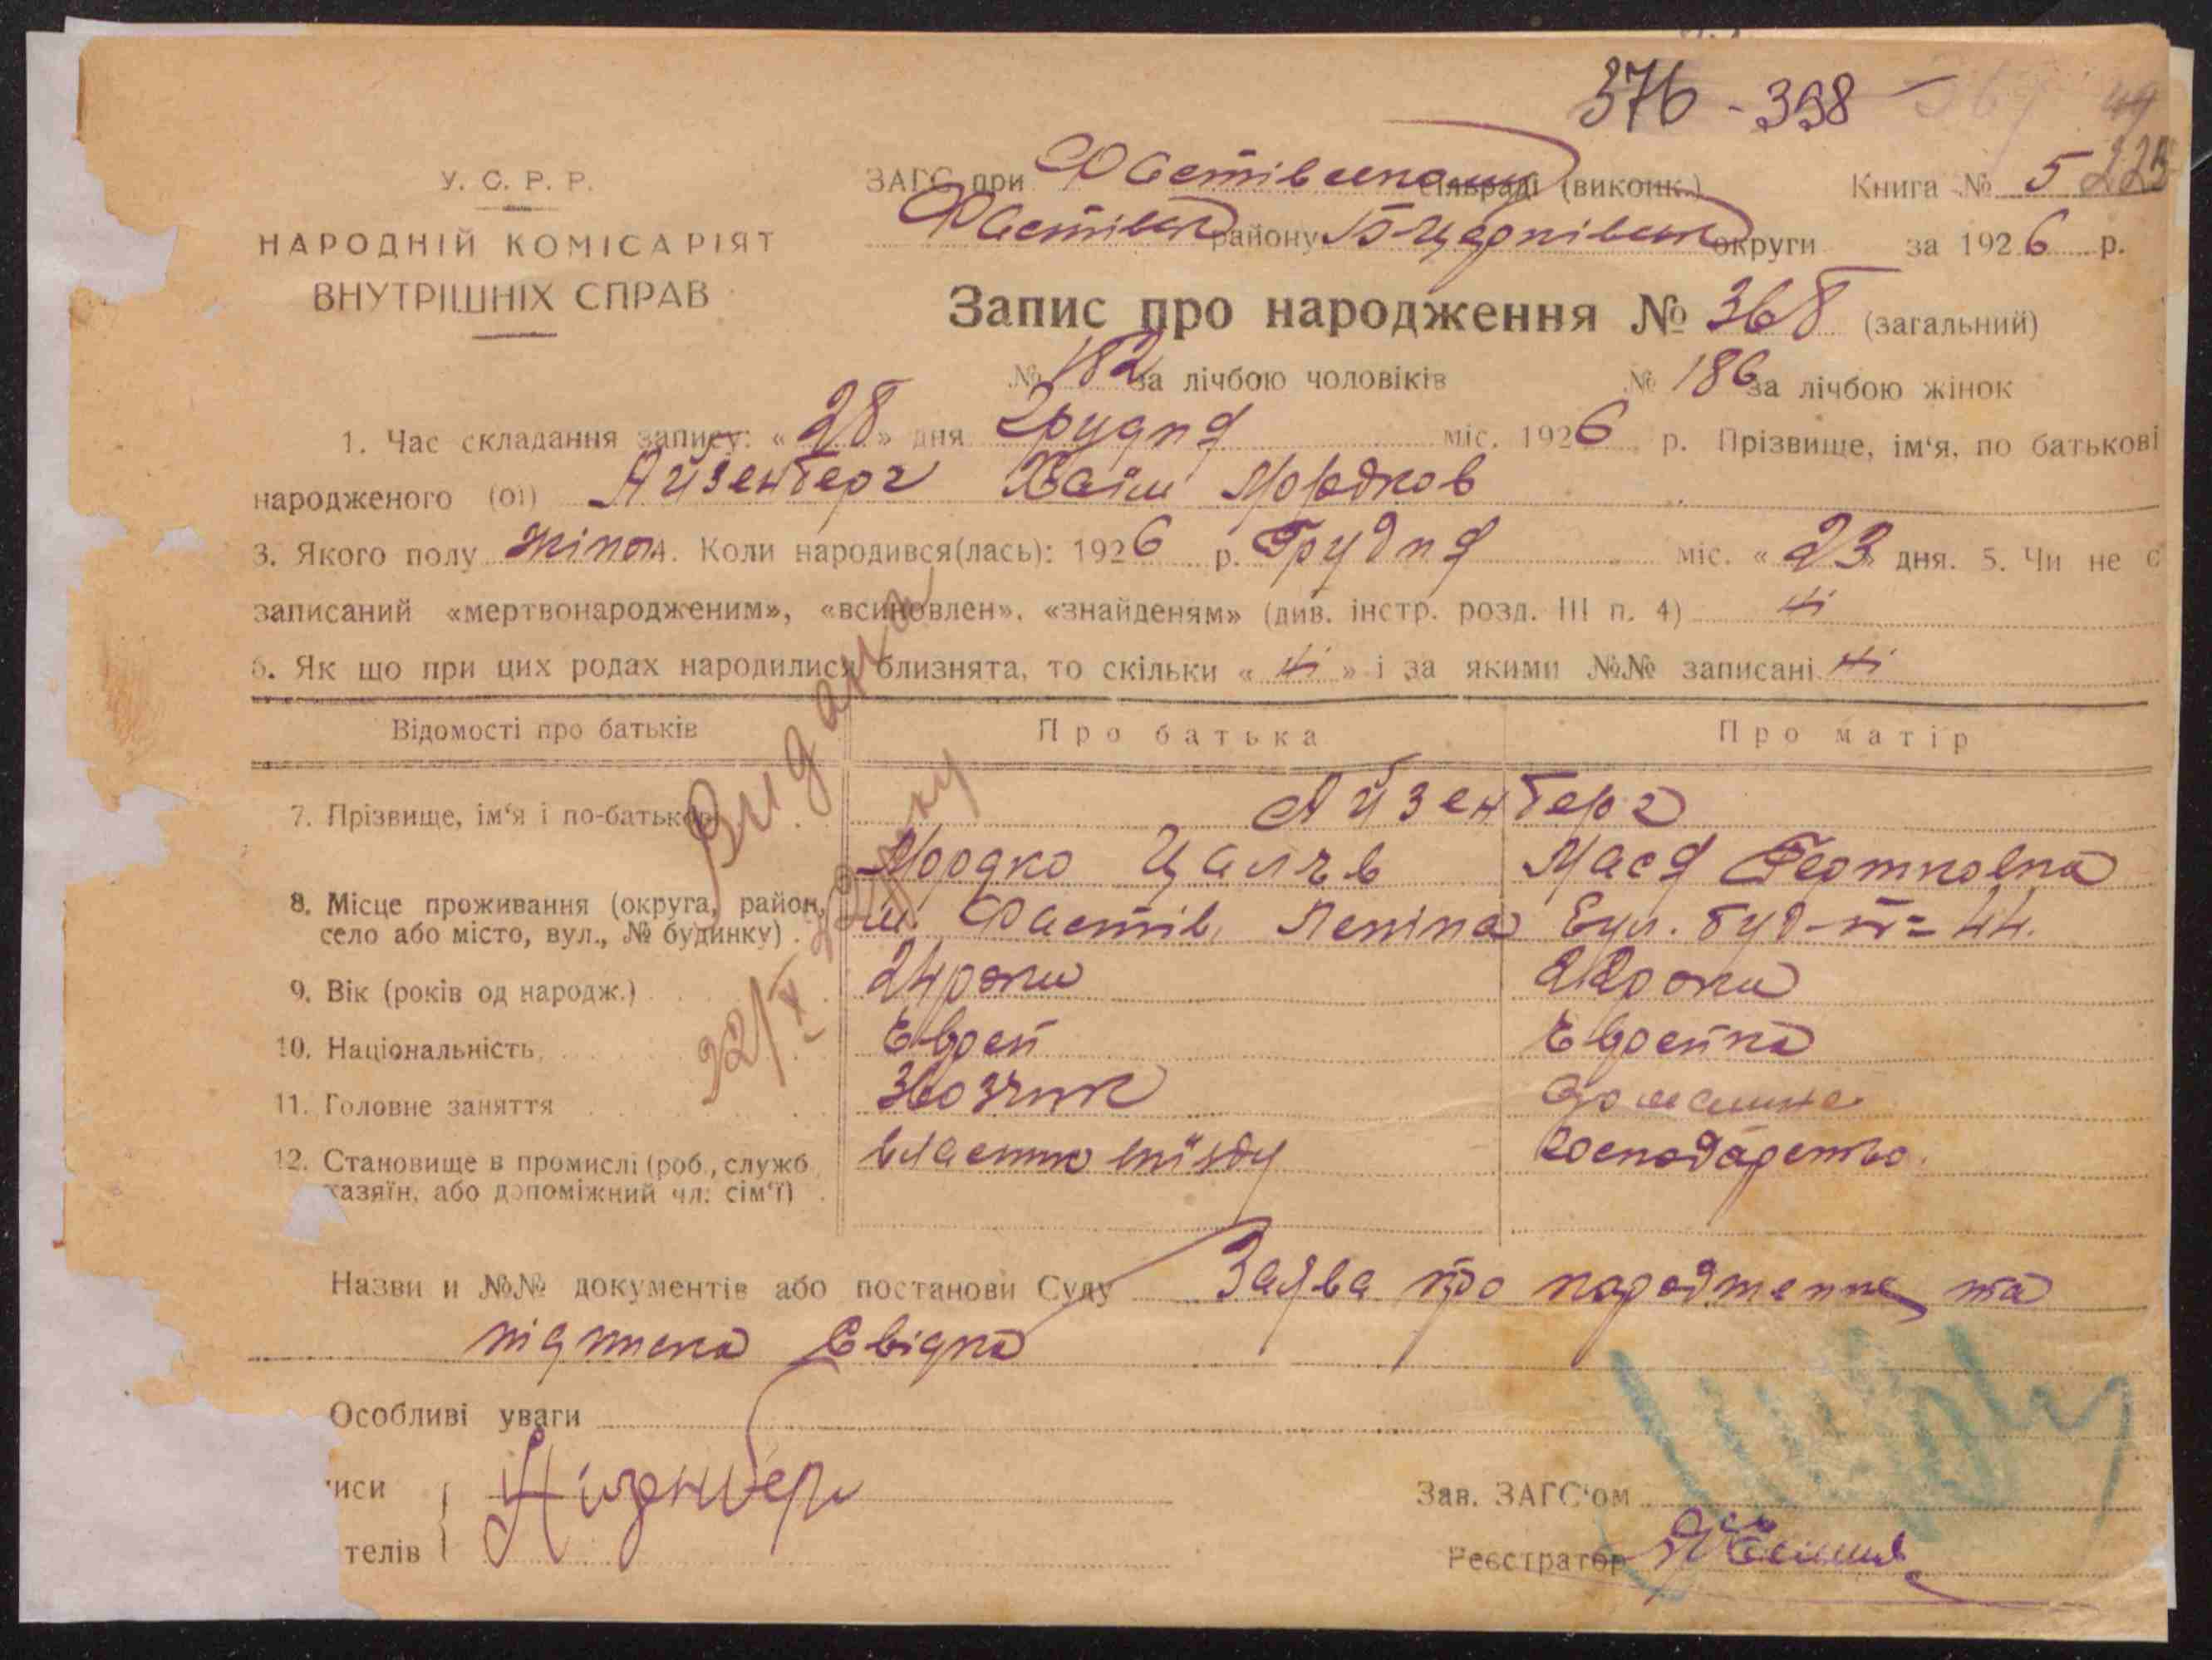 376 - 398
У. С. Р. Р.
НАРОДНІЙ КОМІСАРІЯТ
ВНУТРІШНІХ СПРАВ
ЗАГС при Фастівському сільраді (виконк.) Книга № 5 223
Фастівськ району Б-Церківськ округи за 1926 р.
Запис про народження № 368 (загальний)
№ 182 за лічбою чоловіків № 186 за лічбою жінок
1. Час складання запису: «28» дня Грудня міс. 1926 р. Прізвище, ім'я, по батькові
народженого (ої) Айзенберг Хаїм Мордков
3. Якого полу жіноч. 4. Коли народився(лась): 1926 р. Грудня міс. «23» дня. 5. Чи не є
записаний «мертвонародженим», «всиновлен», «знайденям» (див. інстр. розд. III п. 4) ні
6. Як що при цих родах народилися близнята, то скільки «ні» і за якими №№ записані ні
Відомості про батьків Про батька Про матір
7. Прізвище, ім'я і по-батькові Айзенберг
Мордко Мася
8. Місце проживання (округа, район,
село або місто, вул., № будинку) м. Фастів, Леніна вул. буд-№ 44.
9. Вік (років од народж.) 24 роки 22 роки
10. Національність Єврей Єврейка
11. Головне заняття Звозчик Домашне
12. Становище в промислі (роб., служб.
хазяїн, або допоміжний чл. сім'ї) господарство.
Видано
22/X
Назви и №№ документів або постанови Суду Заява про народження та
підписка Свідка
Особливі уваги
иси
телів Айзенберг
Зав. ЗАГС'ом
Реєстратор